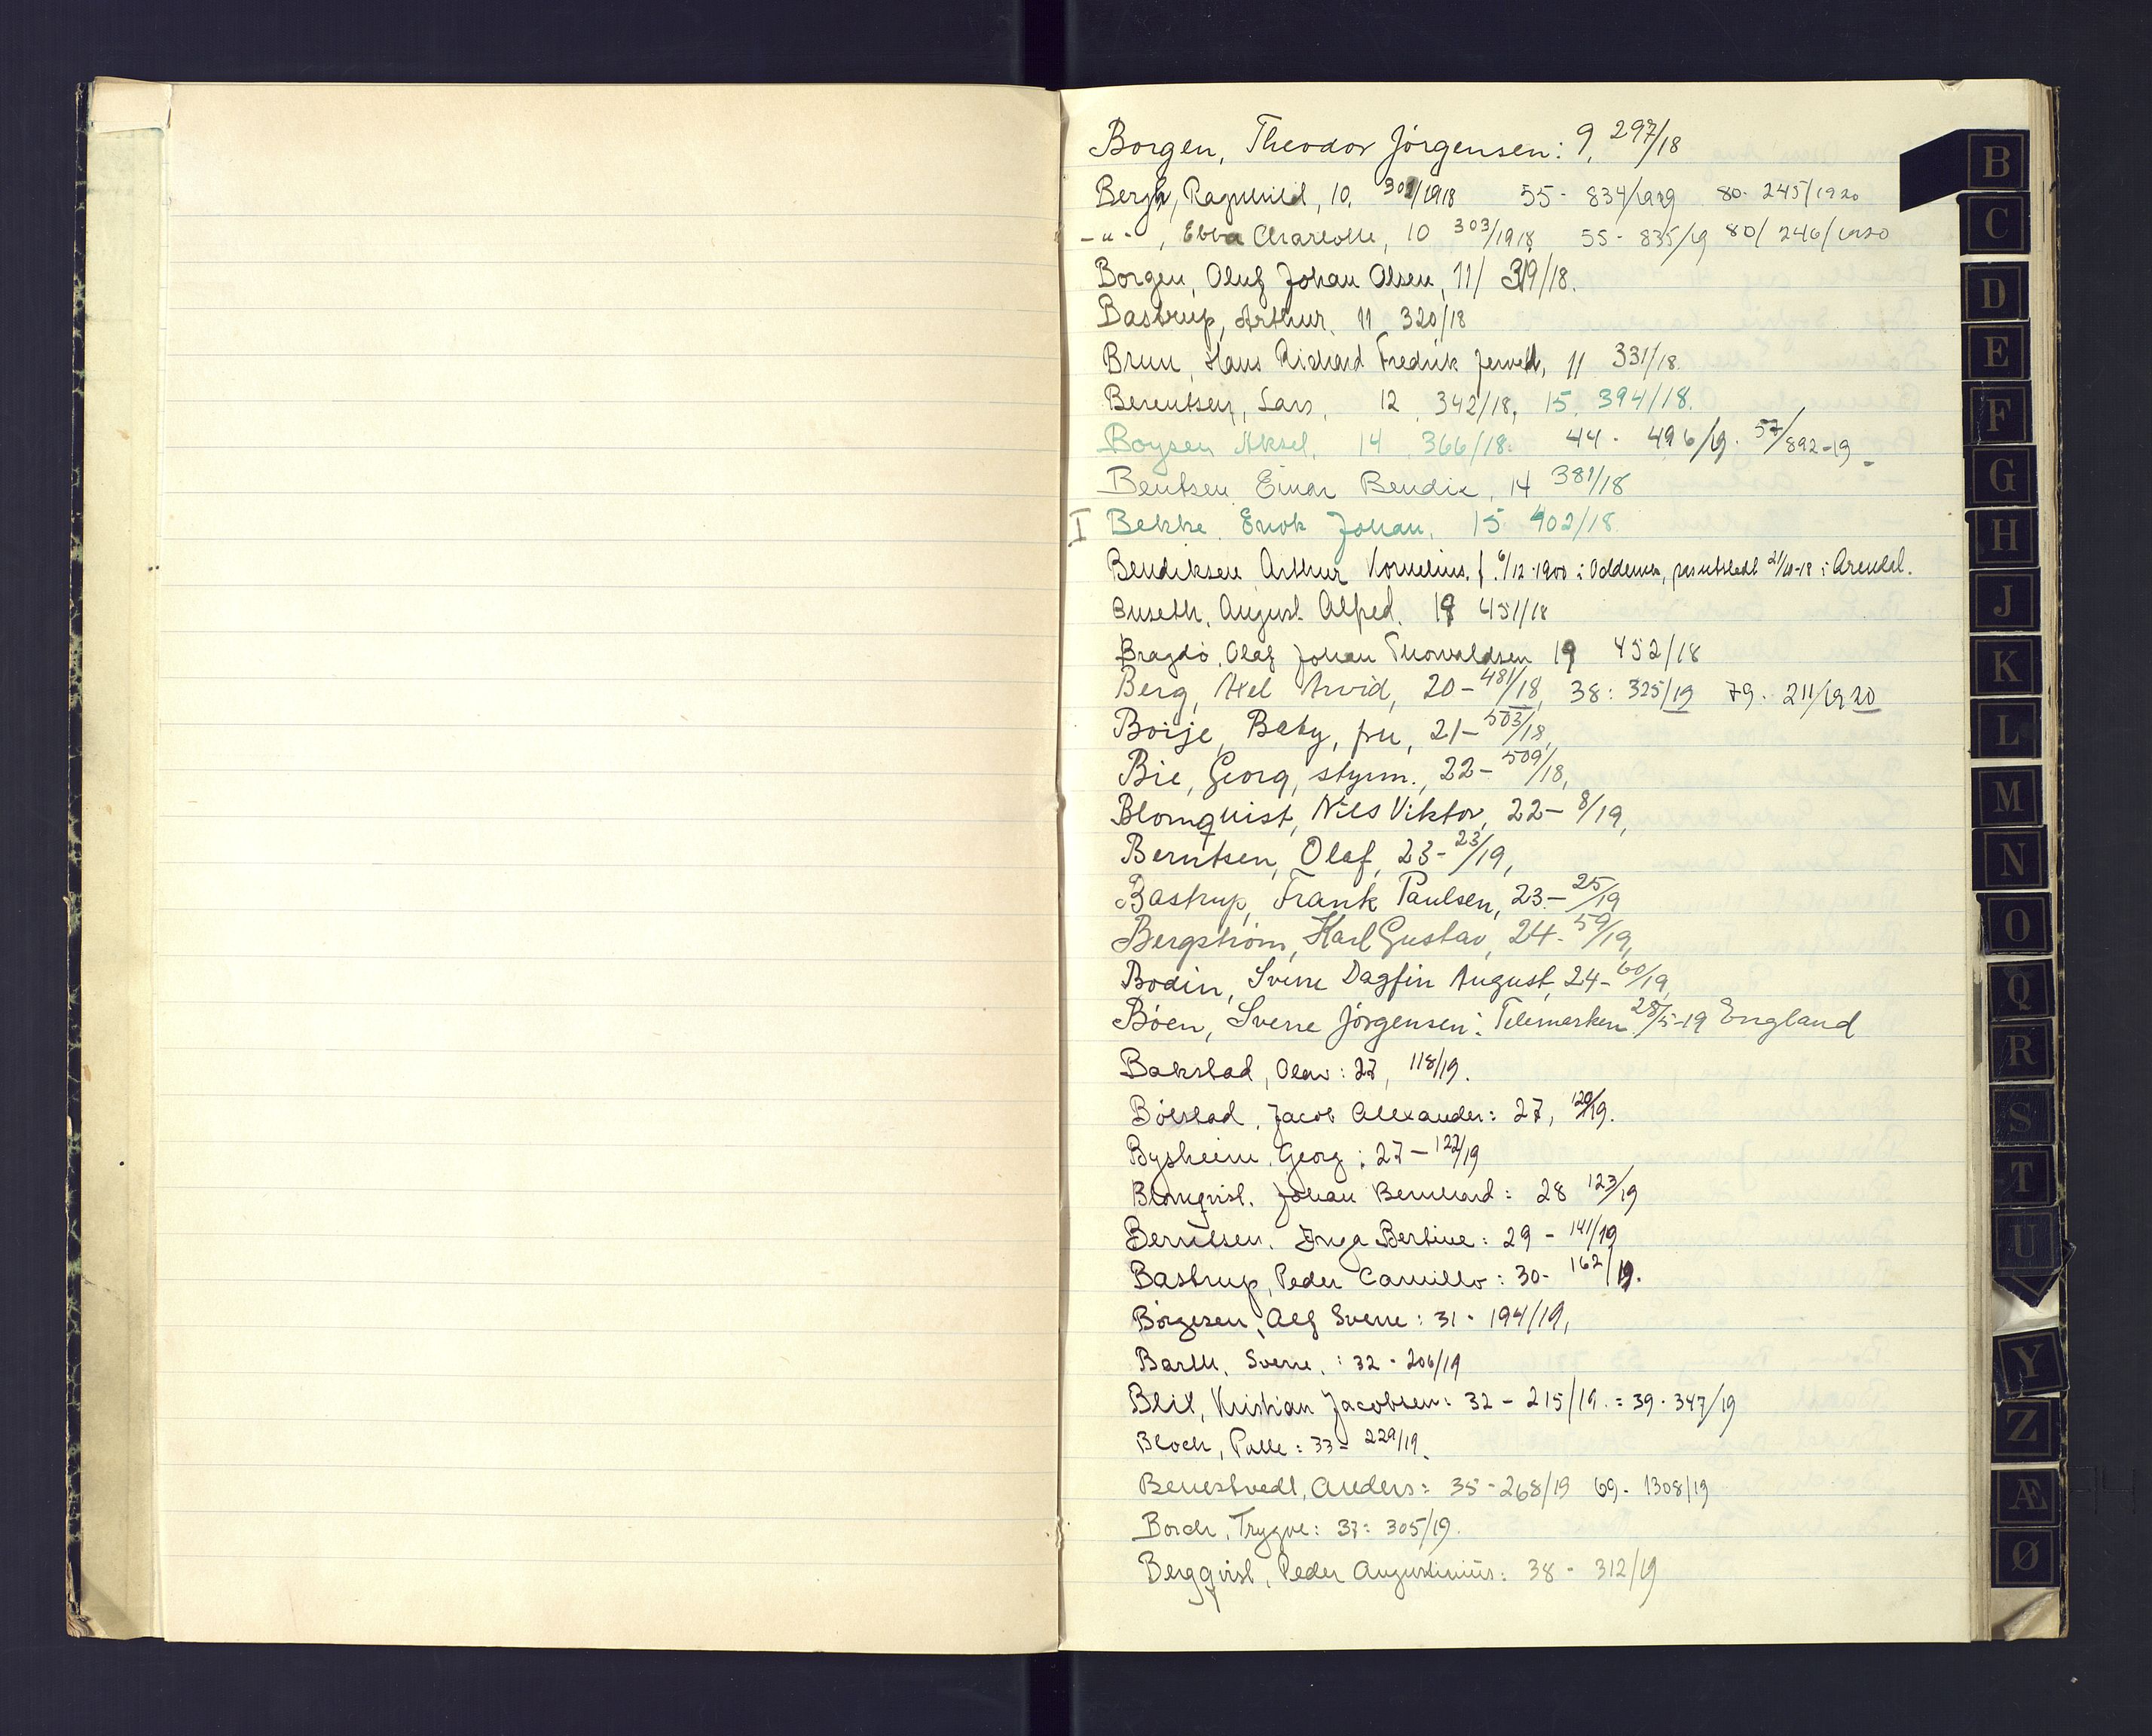 Borgen, Theodor Jörgensen: 9, 297/18
Bergh, Ragnhild, 10, 302/1918 55 - 834/1919 80 - 245/1920
- " - , Ebba Charlotte, 10 303/1918 55 - 835/19 80/ 246/1920
Borgen, Oluf Johan Olsen, 11/ 319/18.
Bastrup, Arthur, 11 320/18
Brun, Hans Richard Fredrik 11 331/18.
Berentsen, Lars, 12 342/18, 15, 394/18.
Boysen Aksel, 14 366/18. 44 - 496/19. 57/892-19
Bentsen Einar Bendix, 14 381/18
I Bekke Enok Johan, 15 402/18
Bendiksen Arthur Kornelius, f. 6/12-1900 i Oddernes, 21/10-18 i Arendal.
Buseth, August Alfred, 18 451/18
Bragdö, Olaf Johan Thorvaldsen 19 452/18
Berg, Axel Arvid, 20 - 481/18, 38: 325/19 79. 211/1920
Boije, Baby, fru, 21 - 503/18,
Bie, Georg, styrm., 22 - 509/18,
Blomquist, Nils Viktor, 22 - 8/19,
Berntsen, Olaf, 23 - 23/19,
Bastrup, Frank Paulsen, 23 - 25/19
Bergström, Karl Gustav, 24 - 59/19,
Bodin, Sverre Dagfin August, 24 - 60/19,
Böen, Sverre Jörgensen: Telemarken 28/5-19 England
Bakstad, Olav: 27, 118/19.
Bölstad, Jacob Alexander: 27, 120/19.
Bysheim, Georg: 27 - 122/19
Blomqvist, Johan Bernhard: 28 123/19
Berntsen, Inga Bertine: 29 - 141/19
Bastrup, Peder Camillo: 30 - 162/19.
Börgesen, Alf Sverre: 31 - 194/19,
Barth, Sverre,: 32 - 206/19
Blix, Kristian Jacobsen: 32 - 215/19. = 39 - 347/19
Bloch, Palle: 33 - 229/19.
Benestvedt, Anders: 35 - 268/19 69 - 1308/19
Borch, Trygve: 37: 305/19.
Bergqvist, Peder Augustinius: 38 - 312/19
B
C
D
E
F
G
H
J
K
L
M
N
O
Q
R
S
T
U
Y
Z
Æ
Ø